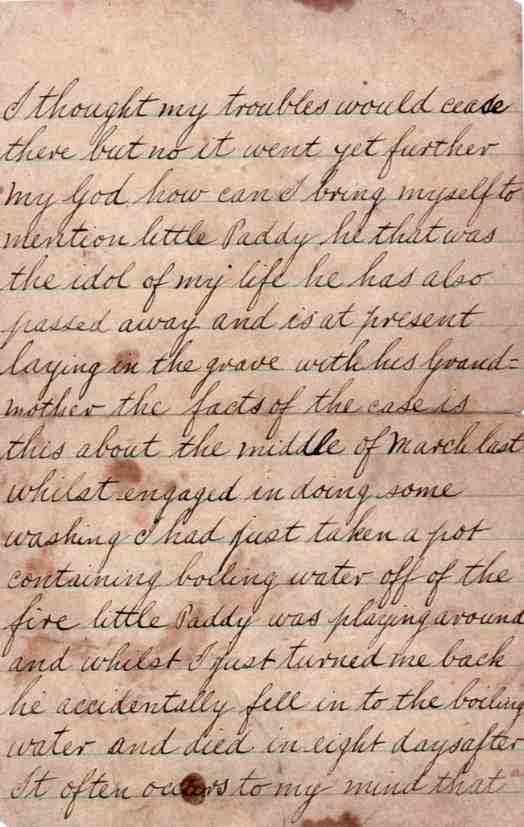 I thought my troubles would cease
there but no it went yet further
My God how can I bring myself to
mention little Paddy he that was
the idol of my life he has also
passed away and is at present
laying in the grave with his Grand=
mother the facts of the case is
this about the middle of March last
whilst engaged in doing some
washing I had just taken a pot
containing boiling water off of the
fire little Paddy was playing around
and whilst I just turned me back
he accidentally fell in to the boiling
water and died in eight days after
It often occurs to my mind that